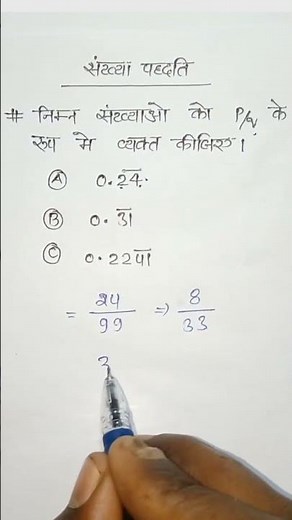 संख्या पद्दति
# निम्न संख्याओ को P/q के
रूप मे व्यक्त कीजिए।
Ⓐ 0.2̅4̅
Ⓑ 0.3̅1̅
Ⓒ 0.224̅1̅
= 24/99 ⇒ 8/33
3